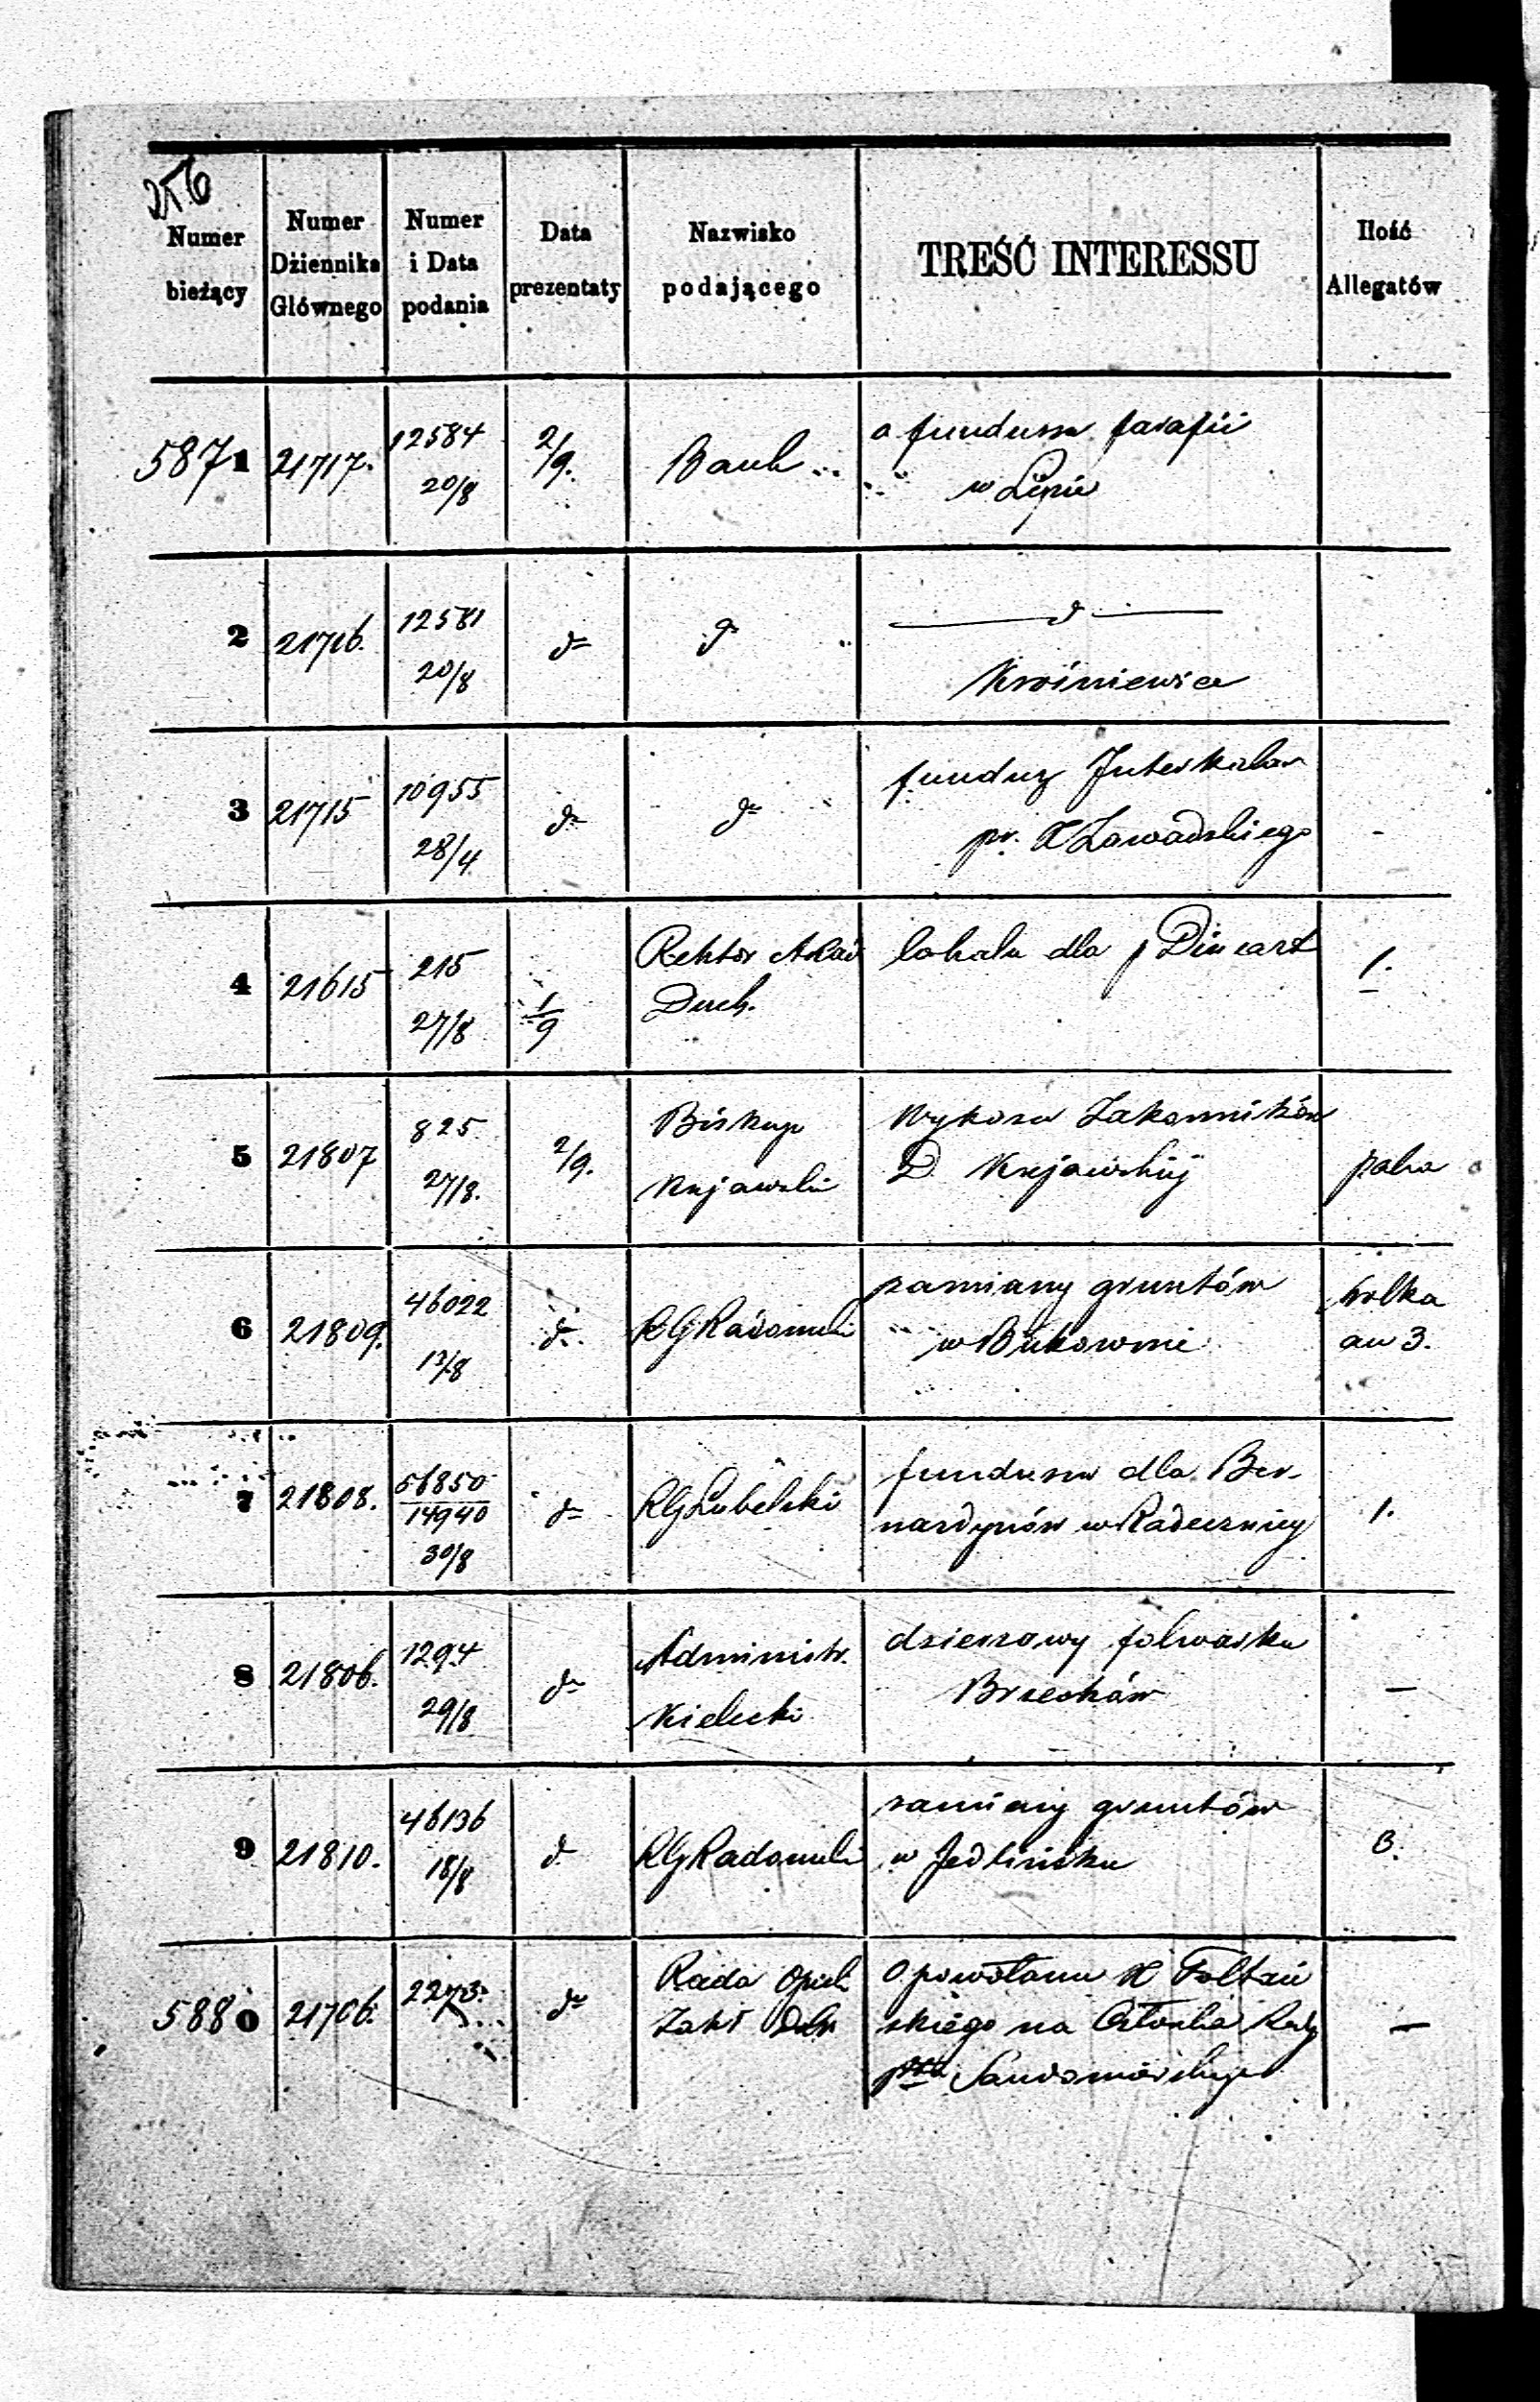 256
Numer bieżący
Numer Dziennika Głównego
Numer i Data podania
Data prezentaty
Nazwisko podającego
TREŚĆ INTERESSU
Ilość Allegatów
5871 21717. 12584 20/8 2/9. Bank o funduszu parafii
w Lipiu
2 21716. 12581 20/8 do do do
Krośniewice
3 21715 10955 28/4 do do fundusz Interkalar
pr. X Zawadzkiego -
4 21615 215 27/8 1/9 Rektor Akad lokalu dla p 1.
Duch.
5 21807 825 27/8. 2/9. Biskup Wykazu Zakonników
Kujawski D Kujawskiej paka
6 21809. 46022 13/8 do RGRadomski zamiany gruntów
w Bukownie 3.
7 21808. 56850 14940 30/8 do RGLubelski funduszu dla Ber-
nardynów w Radecznicy 1.
8 21806. 1294 29/8 do Administr. dzierzawy folwarku
Kielecki Brzesków —
9 21810. 46136 18/8 d RGRadomski zamiany gruntów
w Jedlińsku 3.
5880 21706. 2273. do Rada Opiek O powołaniu X Foltań
Zakł Dobr skiego na Członka Rady —
ptu Sandomierskiego